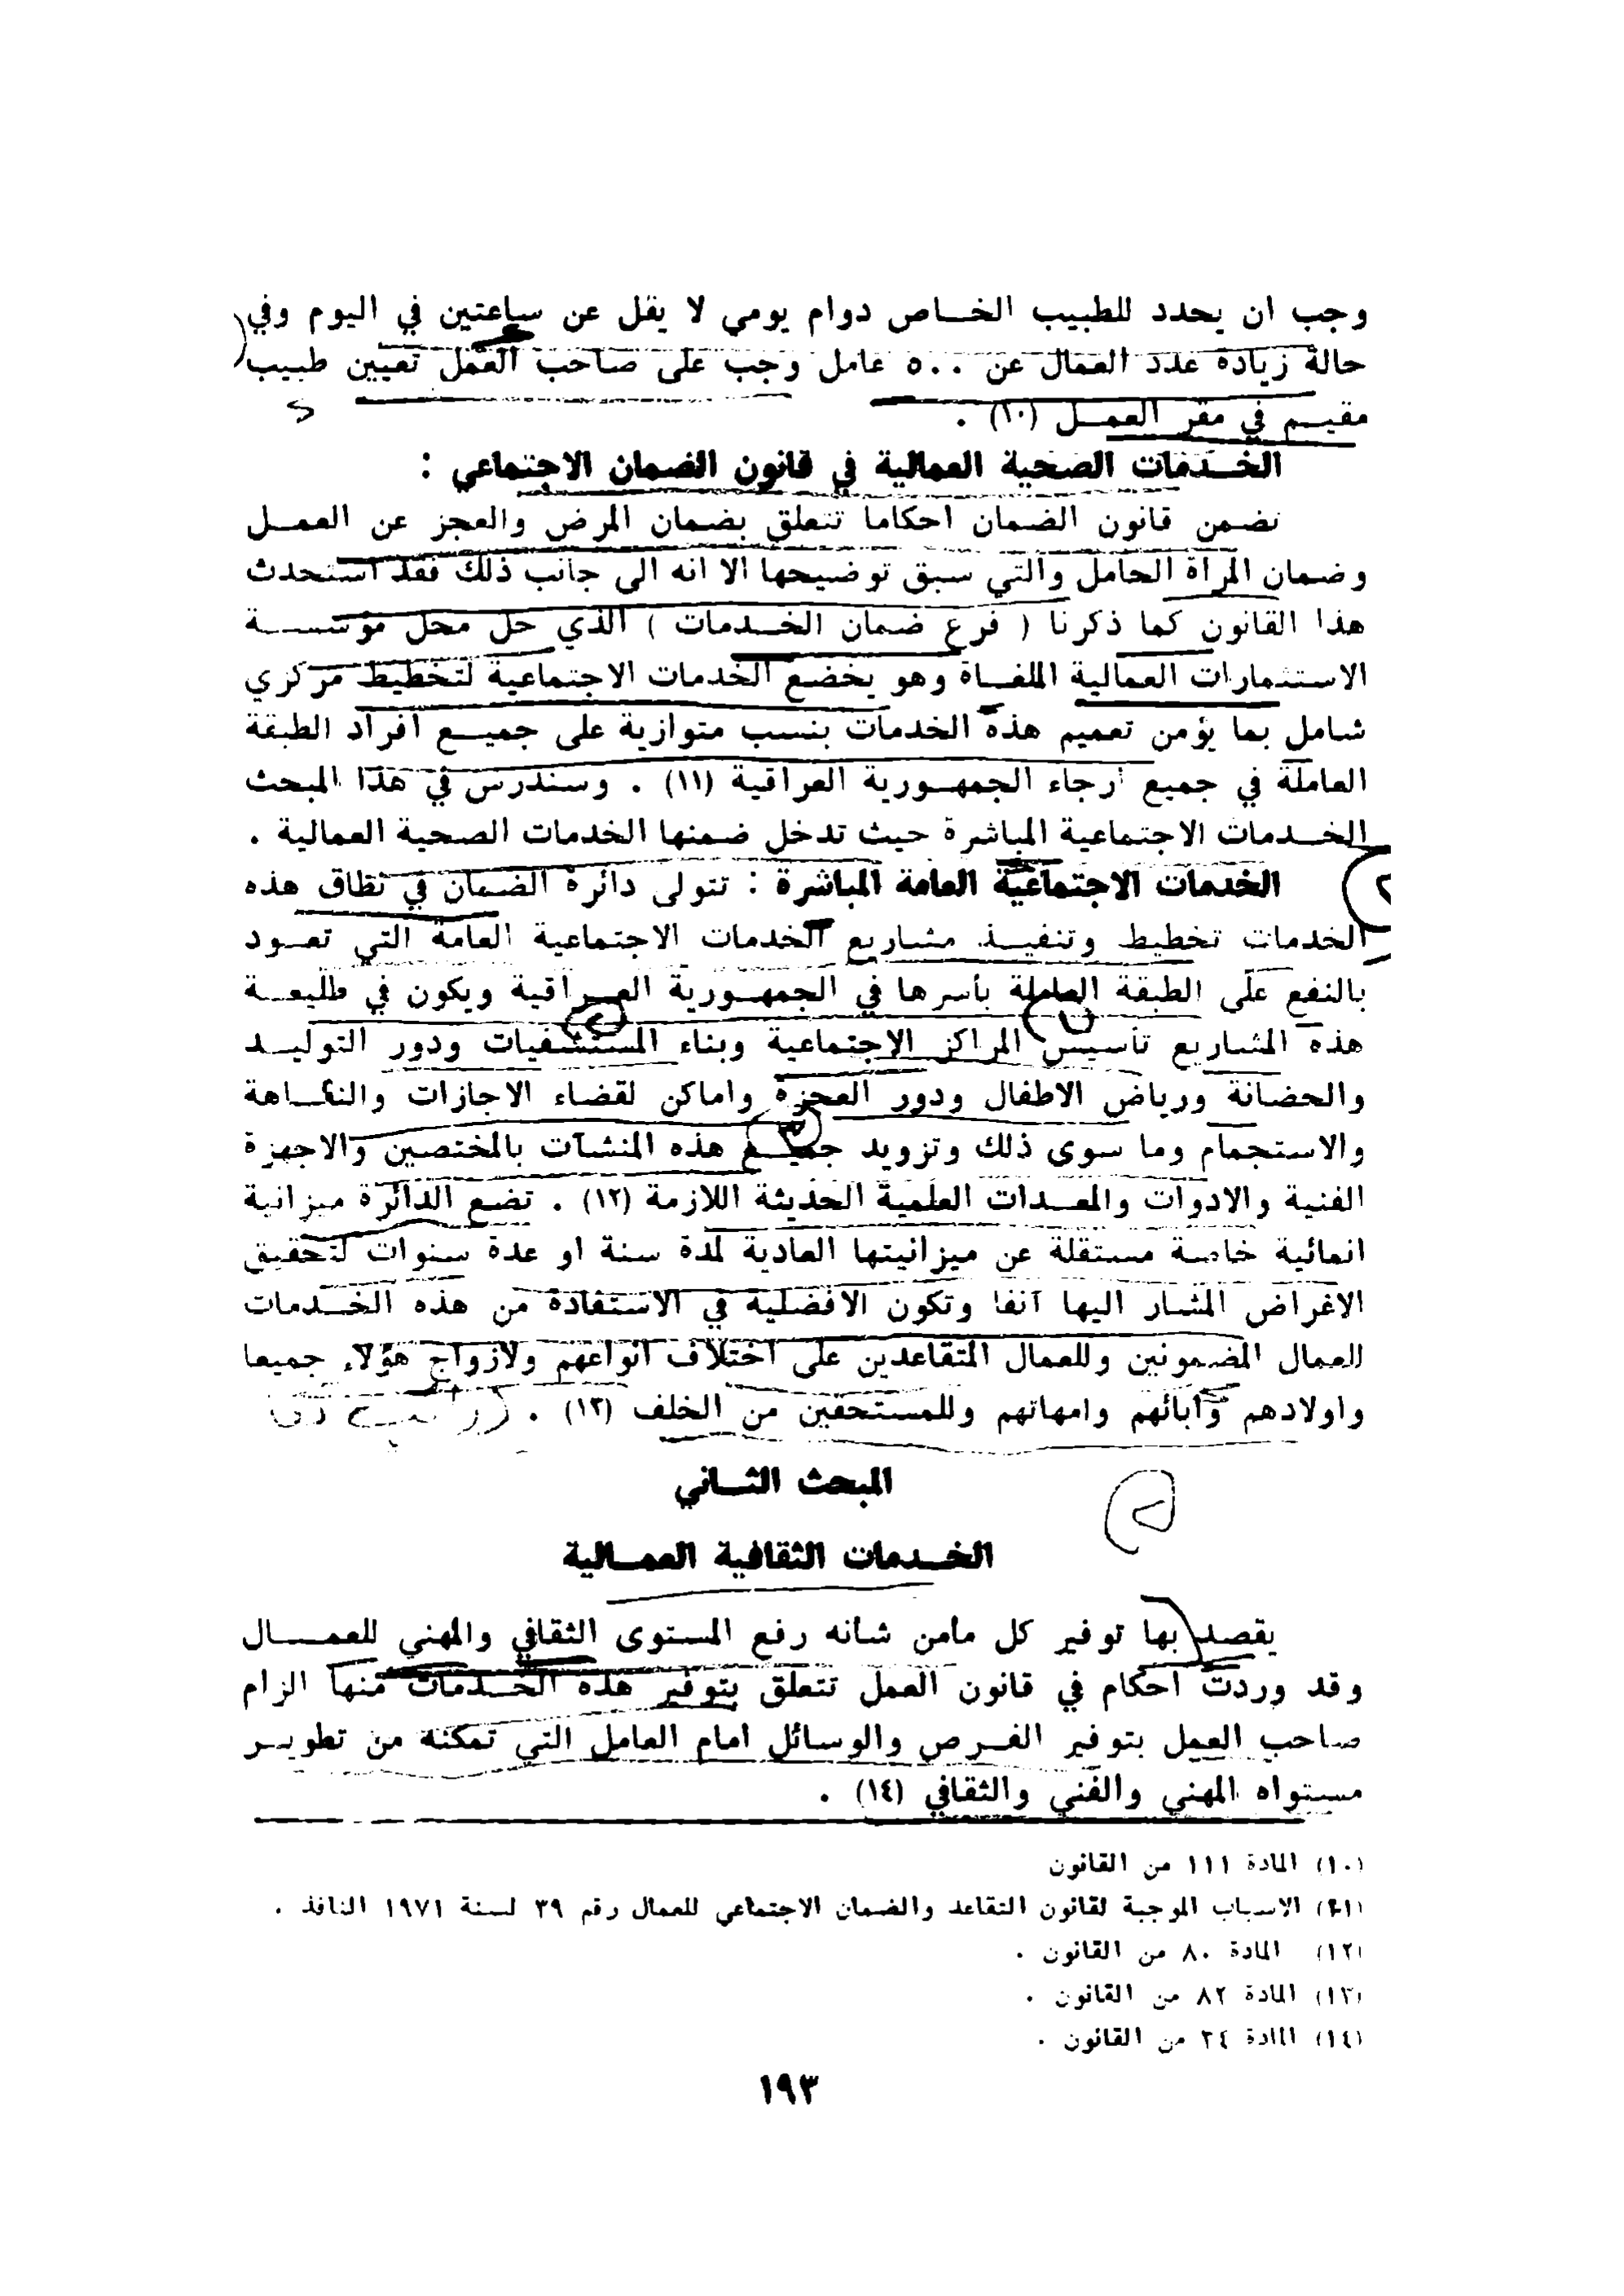 وجب ان يحدد للطبيب الخاص دوام يومي لا يقل عن ساعتين في اليوم وفي
حالة زيادة عدد العمال عن ٥٠٠ عامل وجب على صاحب العمل تعيين طبيب
مقيم في مقر العمل (١٠) .
الخدمات الصحية العمالية في قانون الضمان الاجتماعي :
تضمن قانون الضمان احكاما تتعلق بضمان المرض والعجز عن العمل
وضمان المرأة الحامل والتي سبق توضيحها الا انه الى جانب ذلك فقد استحدث
هذا القانون كما ذكرنا ( فرع ضمان الخدمات ) الذي حل محل مؤسسة
الاستثمارات العمالية الملغاة وهو يخضع الخدمات الاجتماعية لتخطيط مركزي
شامل بما يؤمن تعميم هذه الخدمات بنسب متوازية على جميع افراد الطبقة
العاملة في جميع ارجاء الجمهورية العراقية (١١) . وسندرس في هذا المبحث
الخدمات الاجتماعية المباشرة حيث تدخل ضمنها الخدمات الصحية العمالية .
الخدمات الاجتماعية العامة المباشرة : تتولى دائرة الضمان في نطاق هذه
الخدمات تخطيط وتنفيذ مشاريع الخدمات الاجتماعية العامة التي تعود
بالنفع على الطبقة العاملة بأسرها في الجمهورية العراقية ويكون في طليعة
هذه المشاريع تأسيس المراكز الاجتماعية وبناء المستشفيات ودور التوليد
والحضانة ورياض الاطفال ودور العجزة واماكن لقضاء الاجازات والنقاهة
والاستجمام وما سوى ذلك وتزويد جميع هذه المنشآت بالمختصين والاجهزة
الفنية والادوات والمعدات العلمية الحديثة اللازمة (١٢) . تضع الدائرة ميزانية
انمائية خاصة مستقلة عن ميزانيتها العادية لمدة سنة او عدة سنوات لتحقيق
الاغراض المشار اليها آنفا وتكون الافضلية في الاستفادة من هذه الخدمات
للعمال المضمونين وللعمال المتقاعدين على اختلاف انواعهم ولازواج هؤلاء جميعا
واولادهم وآبائهم وامهاتهم وللمستحقين من الخلف (١٣) .
المبحث الثاني
الخدمات الثقافية العمالية
يقصد بها توفير كل مامن شانه رفع المستوى الثقافي والمهني للعمال
وقد وردت احكام في قانون العمل تتعلق بتوفير هذه الخدمات منها الزام
صاحب العمل بتوفير الفرص والوسائل امام العامل التي تمكنه من تطوير
مستواه المهني والفني والثقافي (١٤) .
(١٠) المادة ١١١ من القانون
(١١) الاسباب الموجبة لقانون التقاعد والضمان الاجتماعي للعمال رقم ٣٩ لسنة ١٩٧١ النافذ .
(١٢) المادة ٨٠ من القانون .
(١٣) المادة ٨٢ من القانون .
(١٤) المادة ٢٤ من القانون .
١٩٣